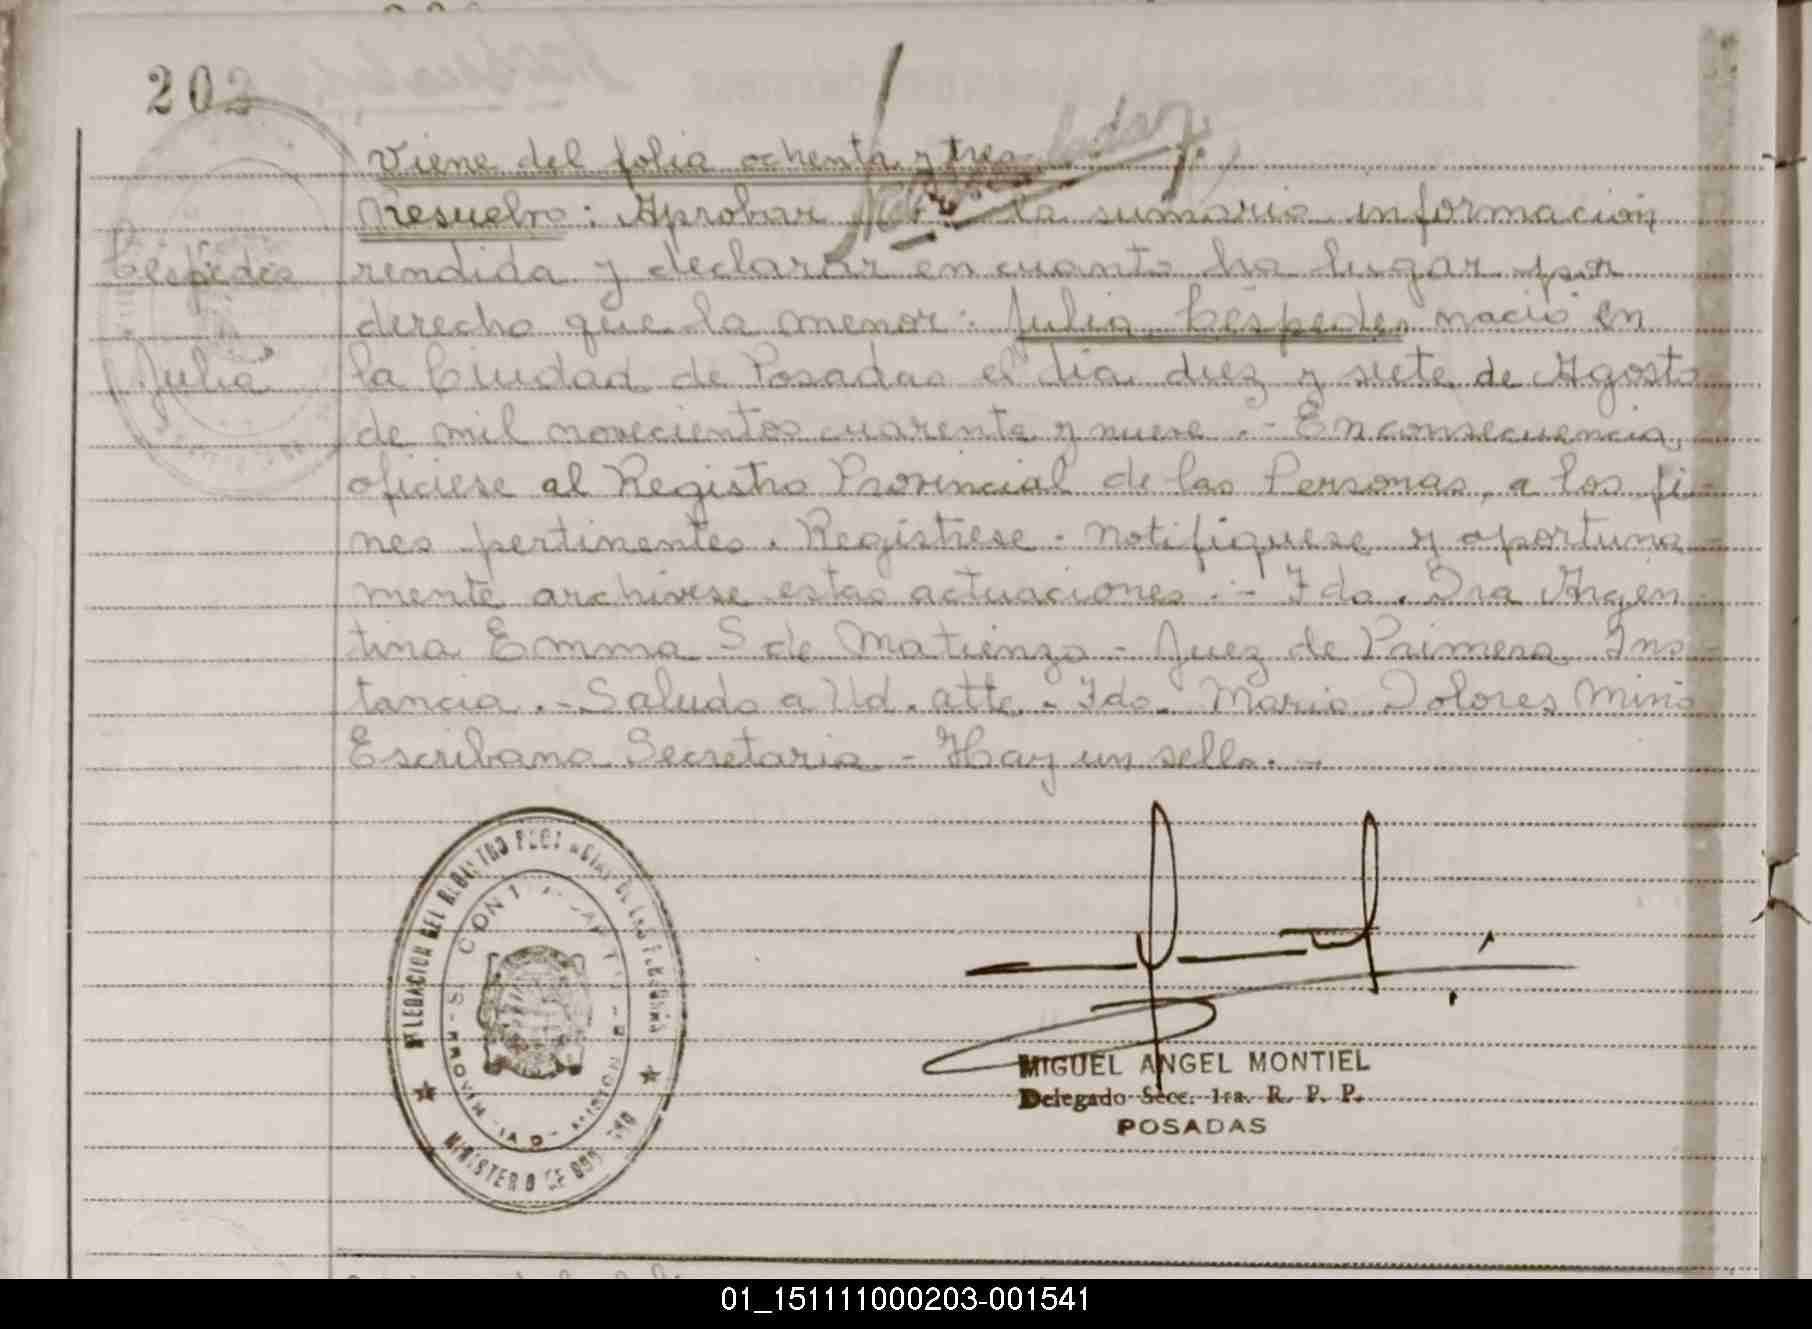 202
Viene del folio ochenta y tres
Resuelvo: Aprobar la sumaria información
Céspedes
rendida y declarar en cuanto ha lugar por
derecho que la menor: Julia Céspedes nació en
Julia
la Ciudad de Posadas el día diez y siete de Agosto
de mil novecientos cuarenta y nueve.- En consecuencia,
ofíciese al Registro Provincial de las Personas, a los fi-
nes pertinentes. Regístrese. notifíquese y oportuna-
mente archívese estas actuaciones.- Fdo. Dra Argen-
tina Emma S de Matienzo - Juez de Primera Ins-
tancia.- Saludo a Ud. atte. Fdo. Maria Dolores Miño
Escribana Secretaria - Hay un sello.-
DELEGACION DEL REGISTRO PROVINCIAL DE LAS PERSONAS
PROVINCIA DE MISIONES
MINISTERIO DE GOBIERNO
MIGUEL ANGEL MONTIEL
Delegado Secc. 1ra. R. P. P.
POSADAS
01_151111000203-001541